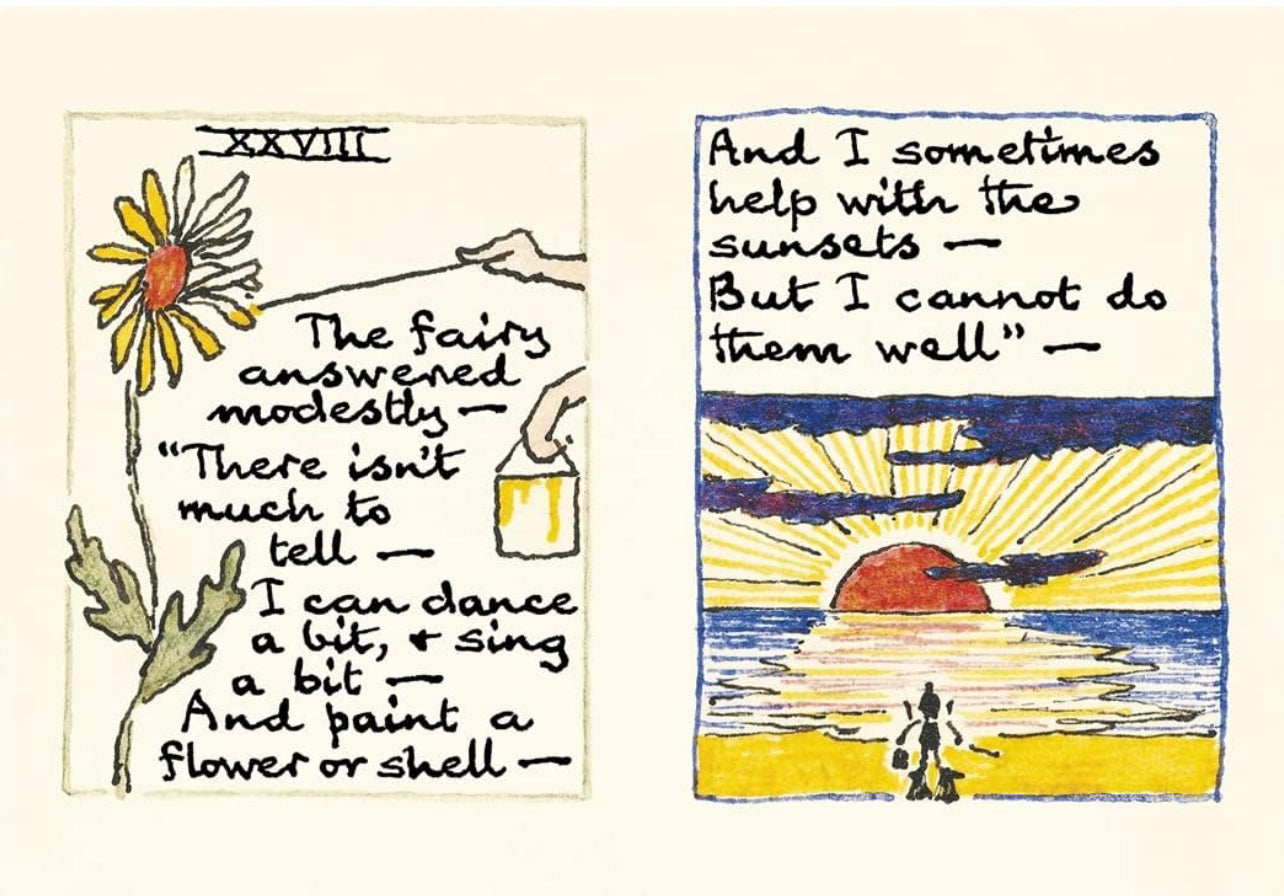 XXVIII
The fairy
answered
modestly —
"There isn't
much to
tell —
I can dance
a bit, + sing
a bit —
And paint a
flower or shell —
And I sometimes
help with the
sunsets —
But I cannot do
them well" —